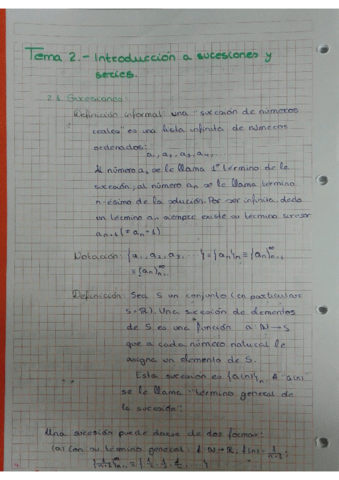 Tema 2.- Introducción a sucesiones y
series.
2.1. Sucesiones
Definición informal: una "sucesión de números
reales" es una lista infinita de números
ordenados:
a₁, a₂, a₃, a₄, ...
Al número a₁ se le llama 1er término de la
sucesión, al número aₙ se le llama término
n-ésimo de la solución. Por ser infinita, dado
un término aₙ siempre existe su término
Notación: {a₁, a₂, a₃, ...} = {aₙ}ₙ = {aₙ}
Definición: Sea S un conjunto (en particular
S=ℝ). Una sucesión de elementos
de S es una función a: ℕ → S
que a cada número natural le
asigna un elemento de S.
Esta sucesión es {a(n)}ₙ. A a(n)
se le llama "término general de
la sucesión".
Una sucesión puede darse de dos formas:
(a) Con su término general: